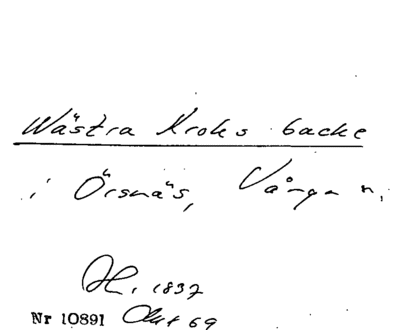 Wästra Kroks backe
i Örsnäs, Vånga n,
H. 1837
Nr 10891 Okt 69